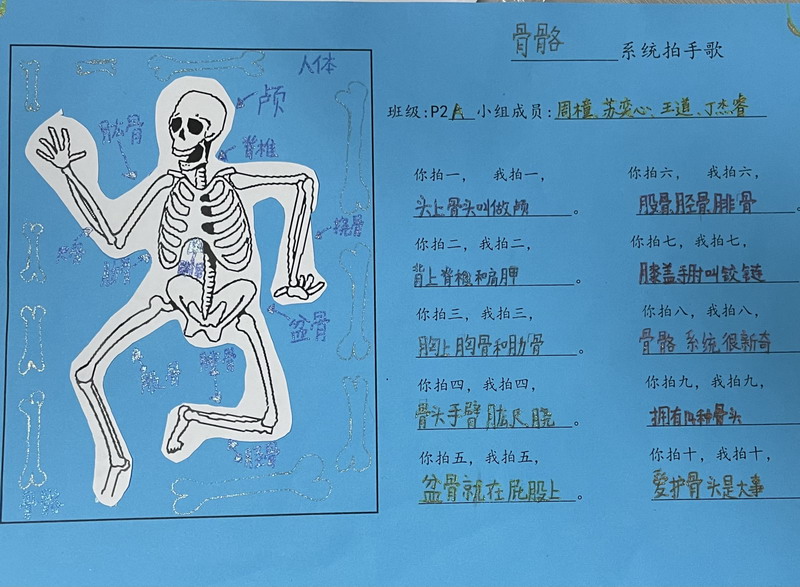 骨骼系统拍手歌
班级:P2A 小组成员:周橦、苏奕心、王道、丁杰睿
人体
颅
肱骨
脊椎
桡骨
盆骨
你拍一，我拍一，
头上骨头叫做颅。
你拍二，我拍二，
背上脊椎和肩胛。
你拍三，我拍三，
胸上胸骨和肋骨。
你拍四，我拍四，
骨头手臂肱尺桡。
你拍五，我拍五，
盆骨就在屁股上。
你拍六，我拍六，
股骨胫骨腓骨。
你拍七，我拍七，
膝盖手肘叫铰链
你拍八，我拍八，
骨骼系统很新奇
你拍九，我拍九，
拥有几种骨头
你拍十，我拍十，
爱护骨头是大事